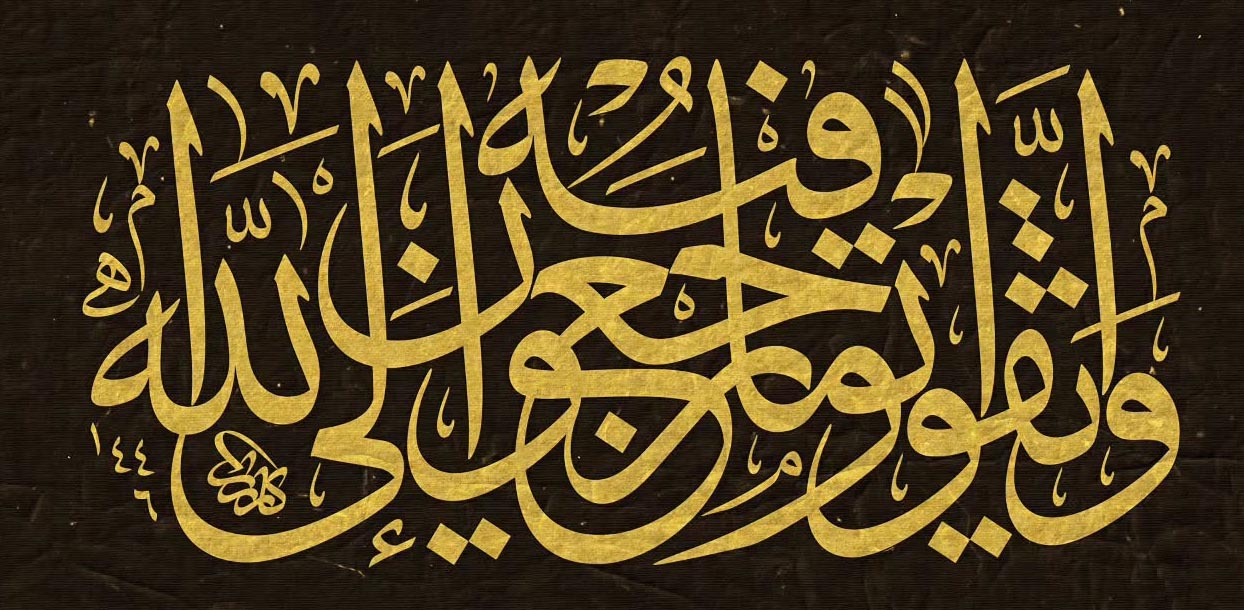 واتقوا يوما ترجعون فيه إلى الله
١٤٤٦